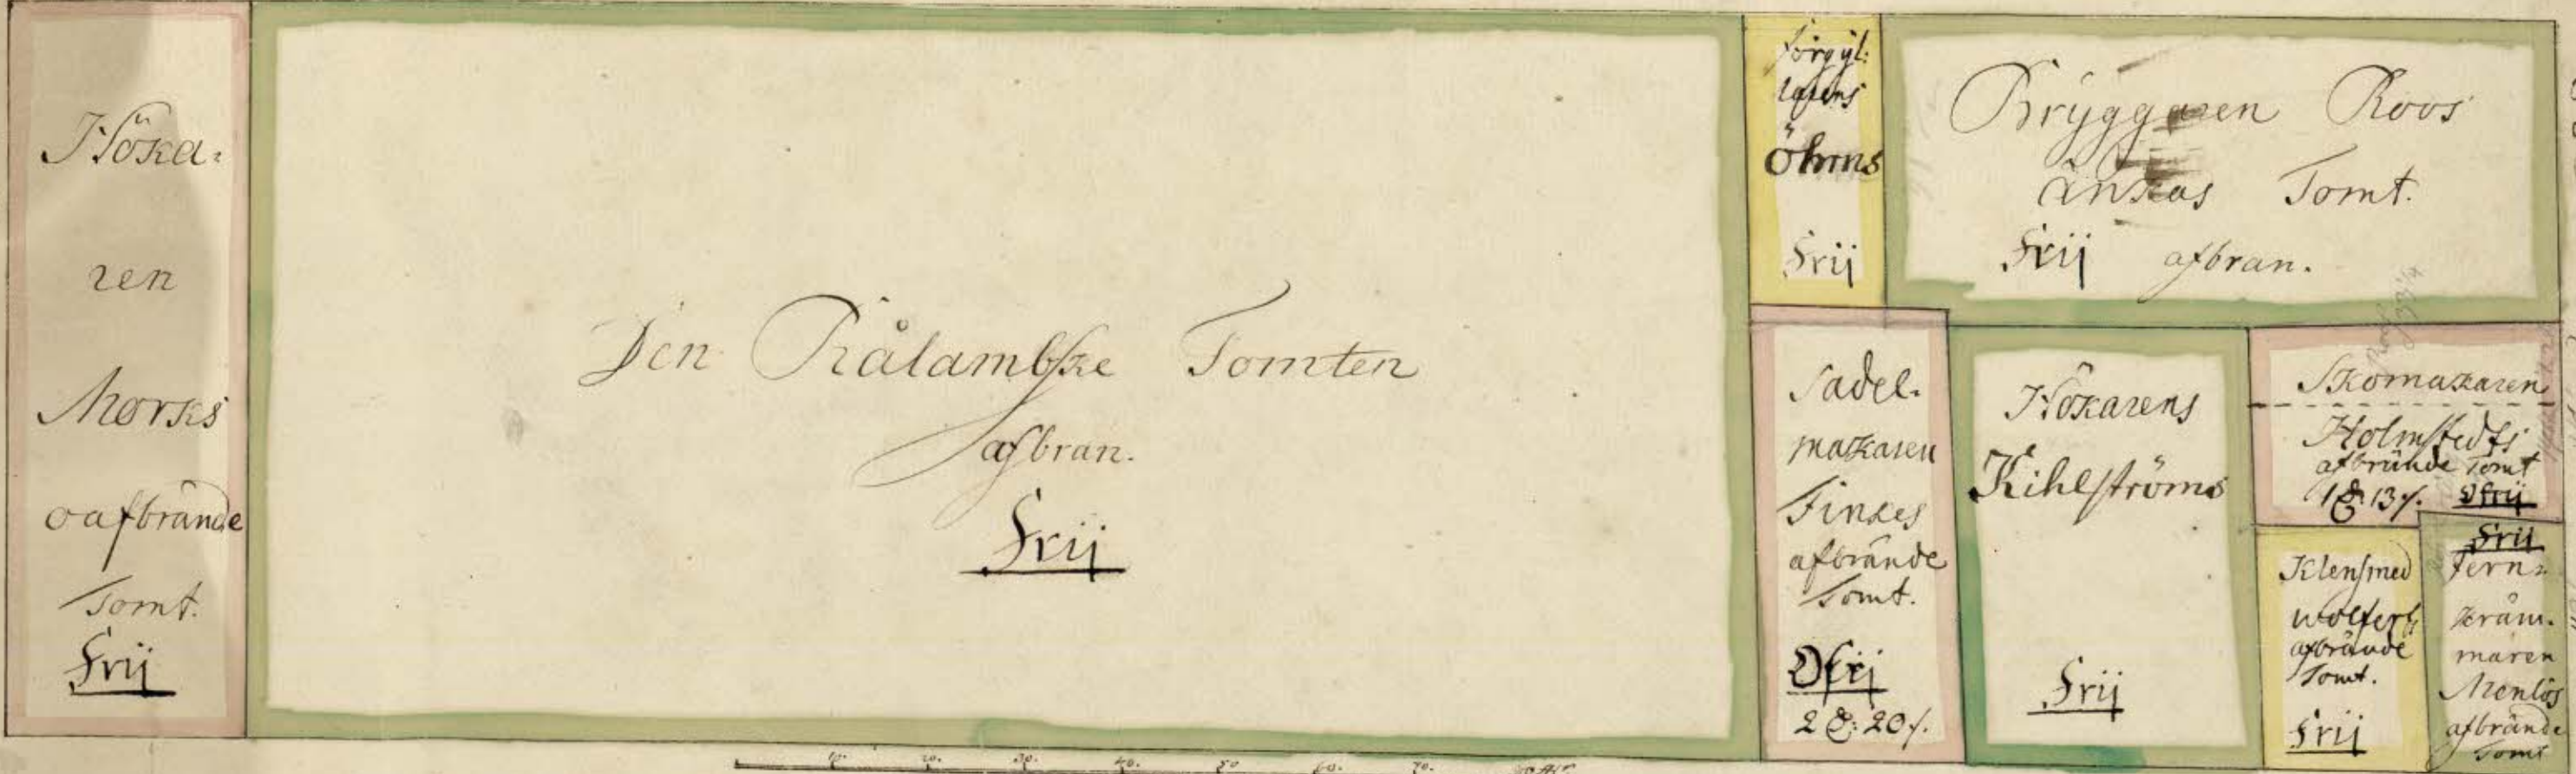 Höka-
ren
Morks
oafbrände
Tomt.
Frij
Den Rålambske Tomten
afbran.
Frij
förgyl-
larens
Öhms
Frij
Bryggaren Roos
änkas Tomt.
Frij afbran.
Sadel-
makaren
Finkes
afbrände
Tomt.
Ofrij
2 20
Hökarens
Kihlströms
Frij
Skomakaren
Holmstedts
afbrände Tomt
1 13 Ofrij
Klensmed
wolferts
afbrände
Tomt.
Frij
Frij
Jern-
kräm-
maren
Menlös
afbrände
Tomt
10. 20. 30. 40. 50 60. 70.